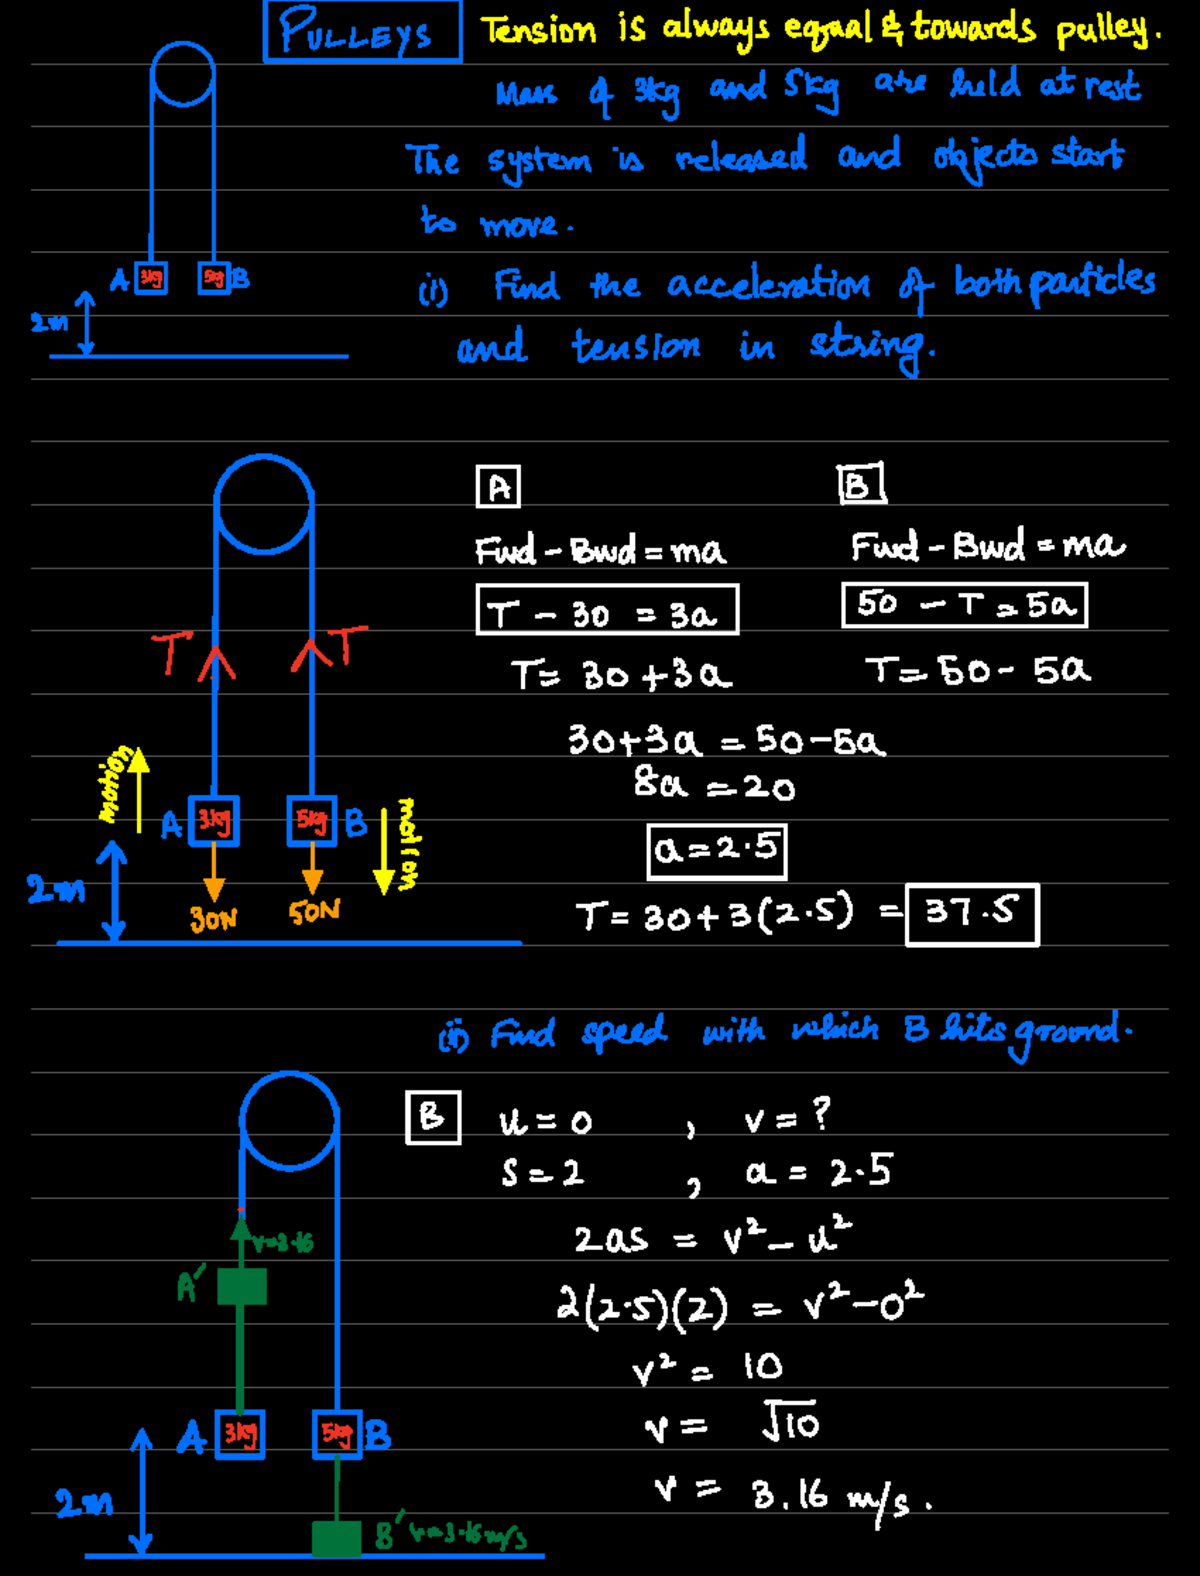 PULLEYS
Tension is always equal & towards pulley.
Mass of 3kg and 5kg are held at rest
The system is released and objects start
to move.
A 3kg 5kg B
2m
(i) Find the acceleration of both particles
and tension in string.
A
B
Fwd - Bwd = ma
Fwd - Bwd = ma
T - 30 = 3a
50 - T = 5a
T T
T = 30 + 3a
T = 50 - 5a
30+3a = 50-5a
8a = 20
motion
A 3kg 5kg B
motion
a = 2.5
2m
30N 50N
T = 30+3(2.5) = 37.5
(ii) Find speed with which B hits ground.
B
u = 0 , v = ?
s = 2 , a = 2.5
2as = v² - u²
v=3.16
A'
2(2.5)(2) = v² - 0²
v² = 10
v = √10
A 3kg 5kg B
2m
v = 3.16 m/s.
B' v=3.16 m/s